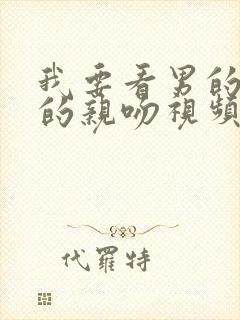 我要看男的
的親吻視頻
代羅特